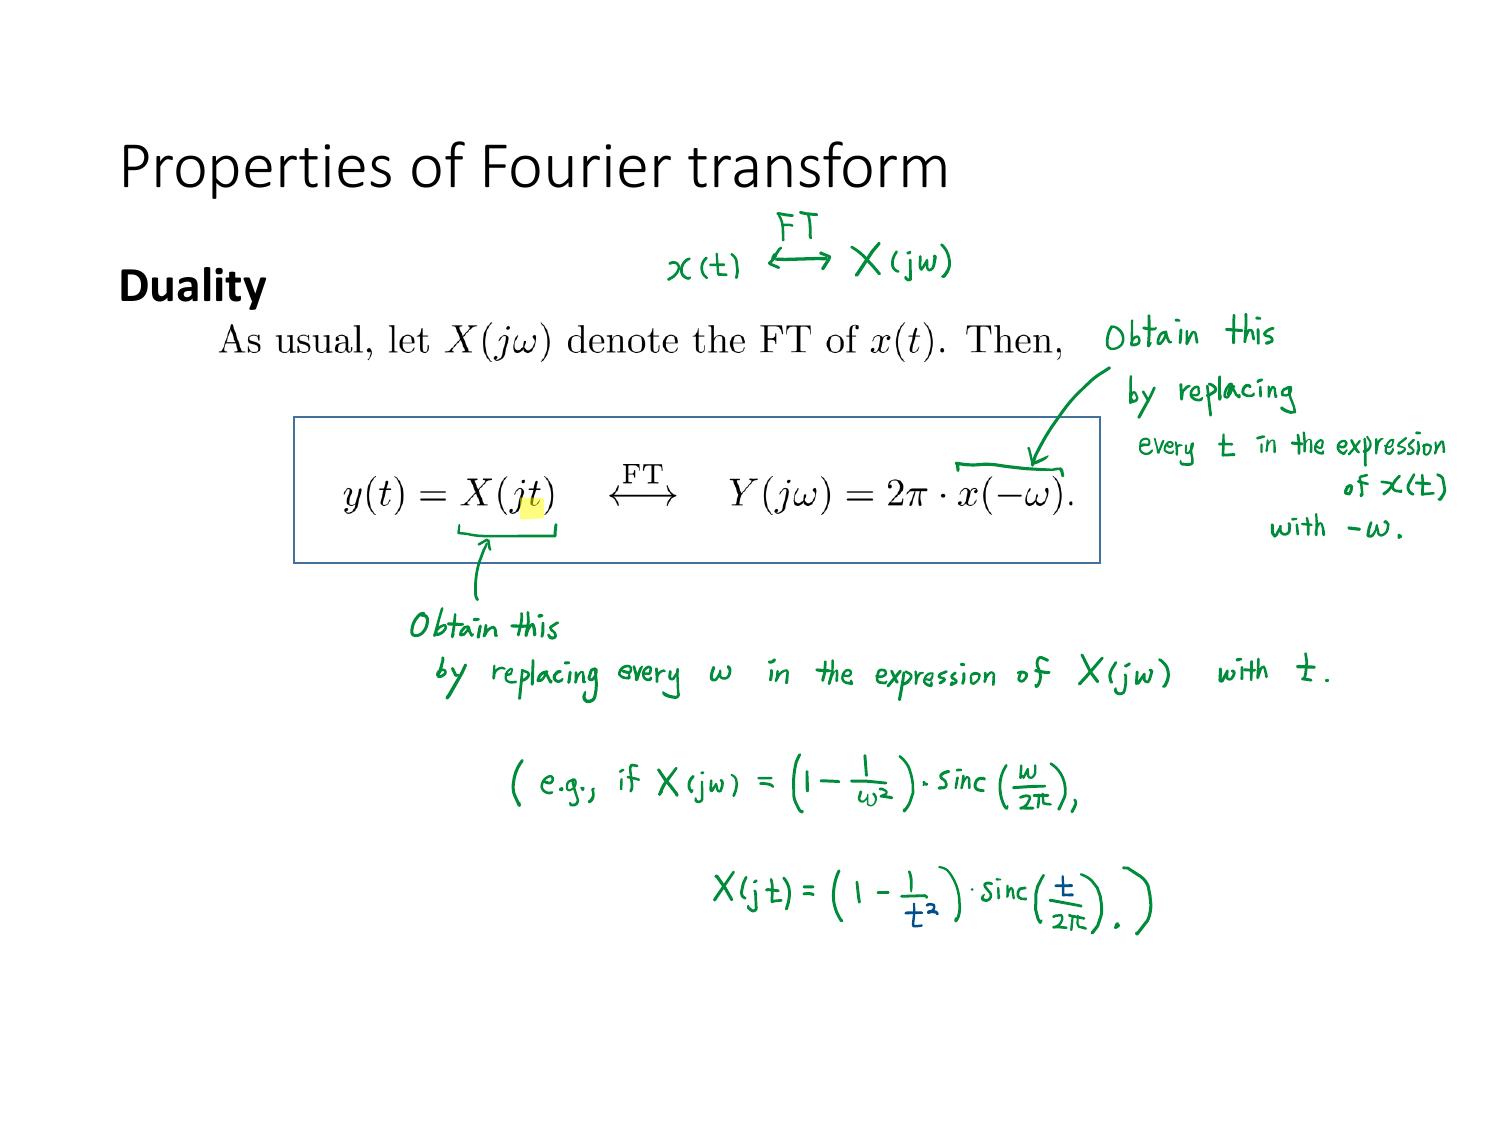 Properties of Fourier transform
x(t) FT ⟷ X(jω)
Duality
As usual, let X(jω) denote the FT of x(t). Then,
Obtain this
by replacing
every t in the expression
of x(t)
with -ω.
y(t) = X(jt) FT ⟷ Y(jω) = 2π · x(−ω).
Obtain this
by replacing every ω in the expression of X(jω) with t.
( e.g., if X(jω) = (1 − 1/ω²) · sinc(ω/2π),
X(jt) = (1 − 1/t²) · sinc(t/2π). )